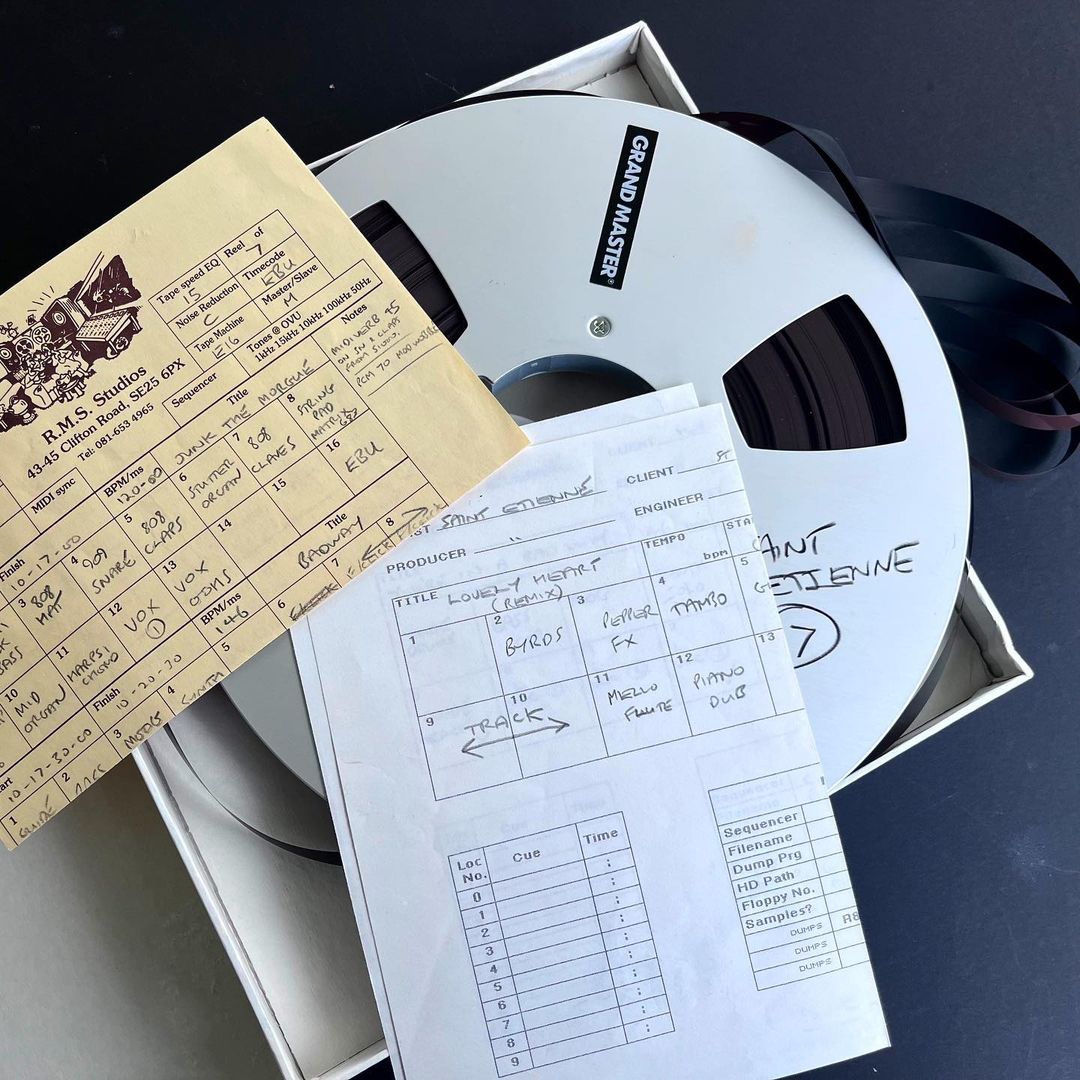 GRAND MASTER®
SAINT
ETIENNE
7
R.M.S. Studios
43-45 Clifton Road, SE25 6PX
Tel: 081-653 4965
Tape speed EQ
15
Reel of
7
Noise Reduction
C
Timecode
EBU
Tape Machine
E16
Master/Slave
M
Tones @ OVU
1kHz 15kHz 10kHz 100kHz 50Hz
MIDI sync
Sequencer
Notes
MIDIVERB 75
ON SN & CLAPS
FROM STUDIO.
PCM 70
Finish
10-17-00
BPM/ms
120-00
Title
JUNK THE MORGUE
3 808
HAT
4 909
SNARE
5 808
CLAPS
6 STUTTER
ORGAN
7 808
CLAVES
8 STRING
PAD
MATRIX
BASS
10 MID
ORGAN
11 HARPSI
12 VOX
1
13 VOX
14
15
16 EBU
Start
10-17-30-00
Finish
10-20-30
BPM/ms
146
Title
BADWAY
1 GUIDE
2
3
4 SYNTH
5
6
7
8
SAINT ETIENNE
CLIENT
PRODUCER "
ENGINEER
TITLE LOVELY HEART
(REMIX)
TEMPO
bpm
STA
1
2 BYRDS
3 PEPPER
FX
4 TAMBO
5
9
10
TRACK
11 MELLO
FLUTE
12 PIANO
DUB
13
Loc
No.
Cue
Time
0 :
1 :
2 :
3 :
4 :
5 :
6 :
7 :
8 :
9
Sequencer
Filename
Dump Prg
HD Path
Floppy No.
Samples?
DUMPS R8
DUMPS
DUMPS